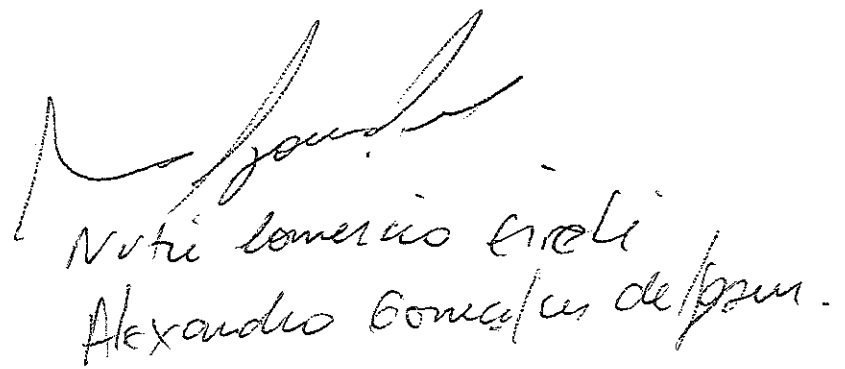 Nutri Comercio Eireli
Alexandro Goncalves de